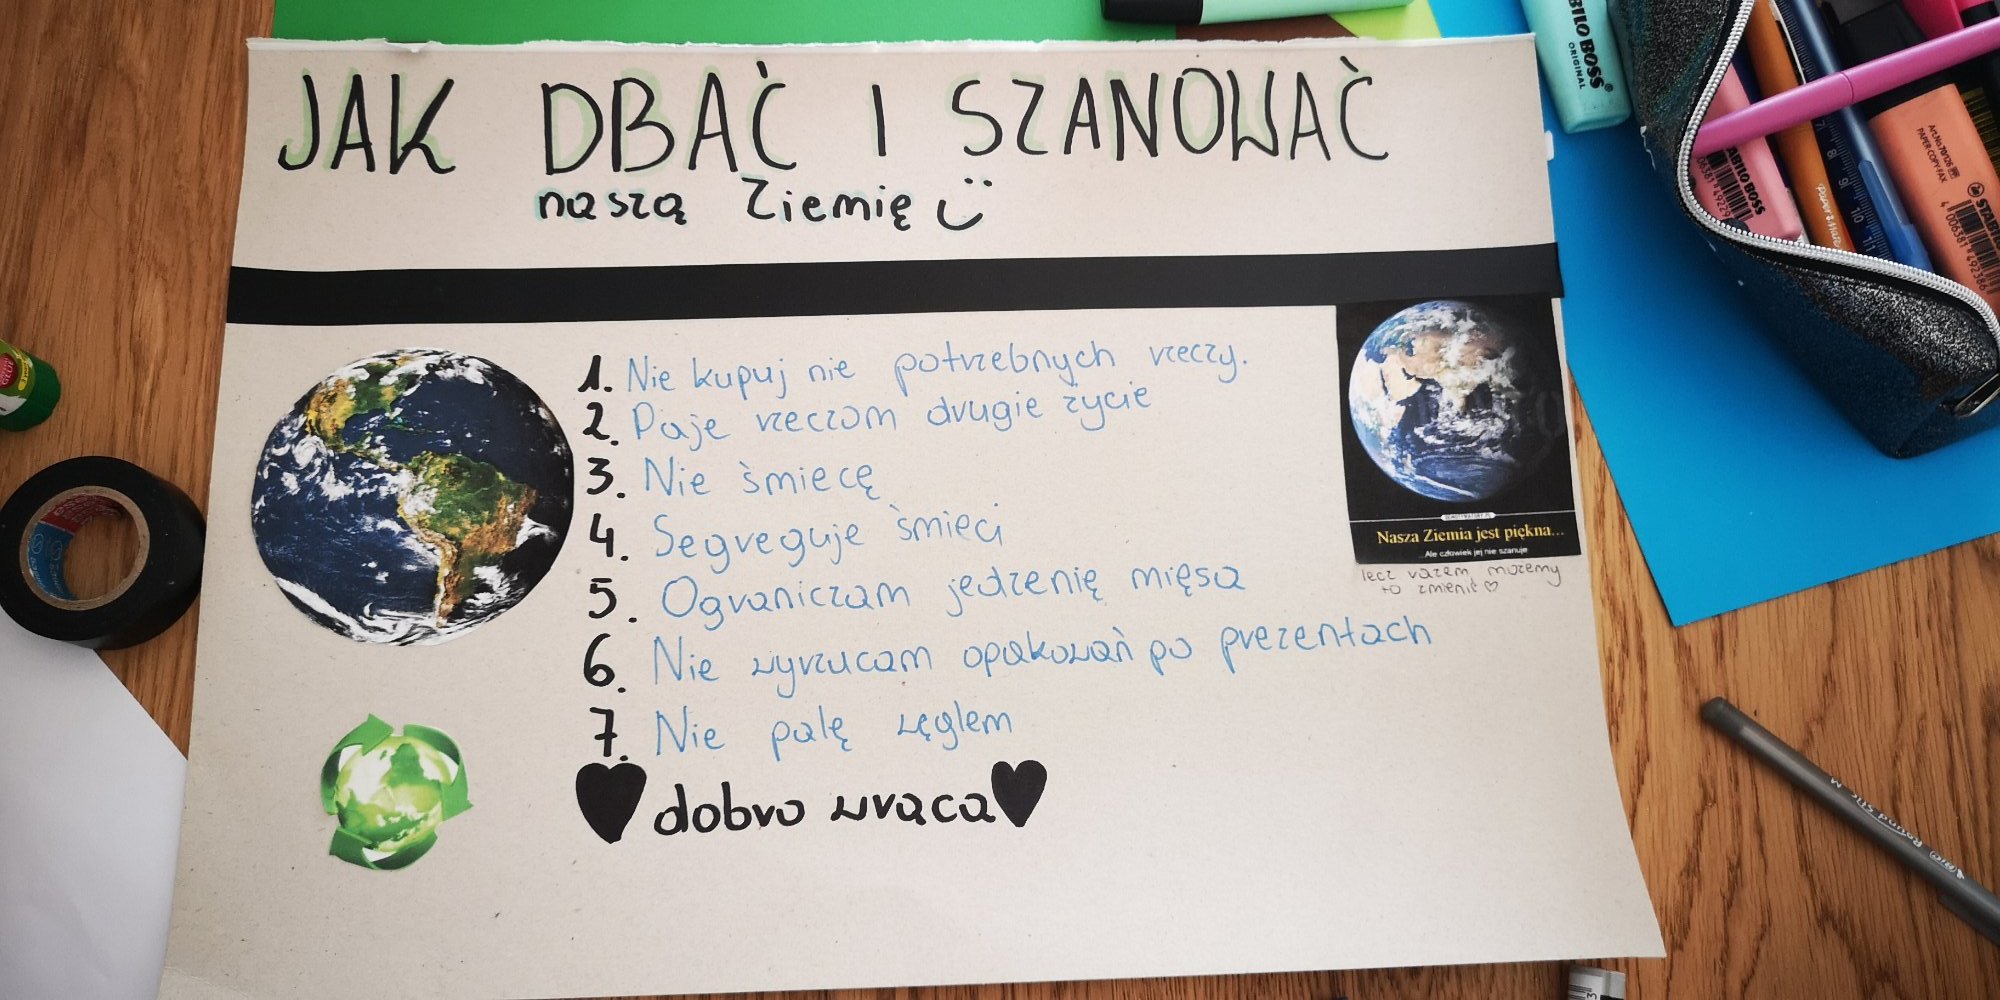 JAK DBAĆ I SZANOWAĆ
naszą Ziemię
1. Nie kupuj nie potrzebnych rzeczy.
2. Daje rzeczom drugie życie
3. Nie śmiecę
4. Segreguje śmieci
5. Ograniczam jedzenię mięsa
6. Nie wyrzucam opakowań po prezentach
7. Nie palę węglem
dobro wraca
Nasza Ziemia jest piękna...
...Ale człowiek jej nie szanuje
lecz razem możemy
to zmienić
STABILO BOSS
ORIGINAL
STABILO BOSS